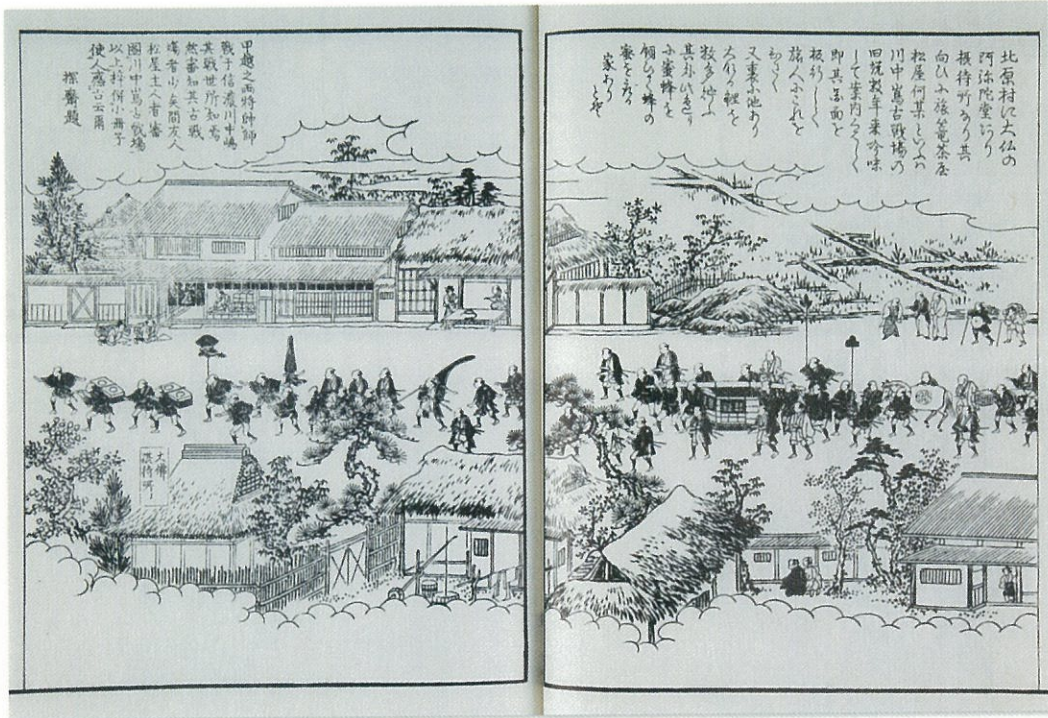 北原村に大仏の
阿弥陀堂にあり
摂待所あり其
向ひに旅篭茶屋
松屋何某といふハ
川中嶌古戦場の
旧説数年来吟味
して案内くハしく
即其畧面を
板行して
旅人にこれを
わかつ
又裏に池あり
大作の鯉を
数多飼ふ
其外此邑
に蜜蜂を
飼ひて蜂の
蜜をとる
家ありとぞ
甲越之両将帥師
戦于信濃川中嶋
其戦世所知焉
然審知其古戦
場者少矣間友人
松屋主人者審
図川中嶌古戦場
以上梓併小冊子
使人応古云爾
探馨題
大佛
摂待所